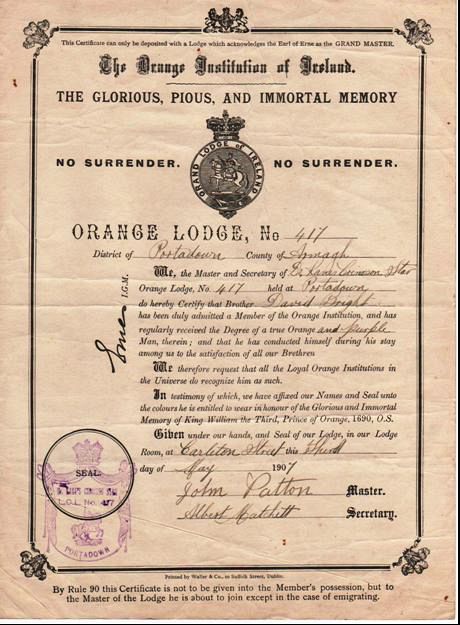 This Certificate can only be deposited with a Lodge which acknowledges the Earl of Erne as the GRAND MASTER.
The Orange Institution of Ireland.
THE GLORIOUS, PIOUS, AND IMMORTAL MEMORY
NO SURRENDER. NO SURRENDER.
GRAND LODGE of IRELAND
ORANGE LODGE, No 417
District of Portadown County of Armagh
We, the Master and Secretary of Crimson Star
Orange Lodge, No. 417 held at Portadown
do hereby Certify that Brother David Wright
has been duly admitted a Member of the Orange Institution, and has
regularly received the Degree of a true Orange and purple
Man, therein; and that he has conducted himself during his stay
among us to the satisfaction of all our Brethren
We therefore request that all the Loyal Orange Institutions in
the Universe do recognize him as such.
In testimony of which, we have affixed our Names and Seal unto
the colours he is entitled to wear in honour of the Glorious and Immortal
Memory of King William the Third, Prince of Orange, 1690, O.S.
Given under our hands, and Seal of our Lodge, in our Lodge
Room, at Carleton Street this Third
day of May 1907
John Patton Master.
Albert Matchett Secretary.
Erne I.G.M.
SEAL.
L.O.L. No. 417
PORTADOWN
Printed by Waller & Co., 10 Suffolk Street, Dublin.
By Rule 90 this Certificate is not to be given into the Member's possession, but to
the Master of the Lodge he is about to join except in the case of emigrating.